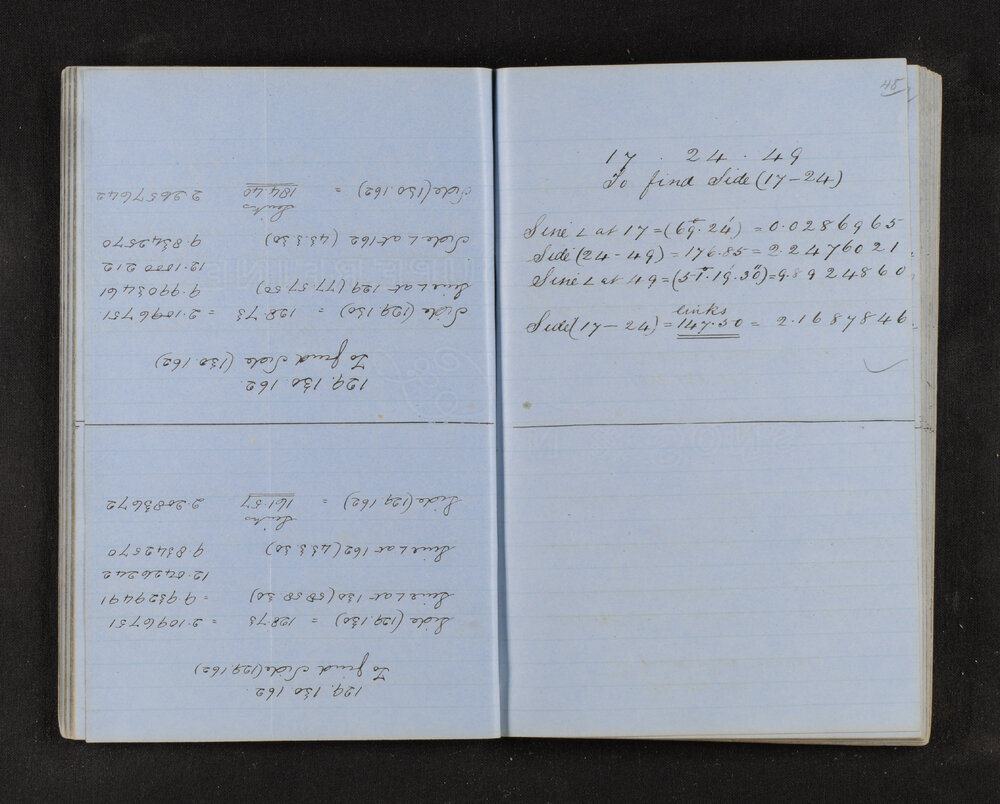 129. 130 162
To find Side (129.162)
Side (129.130) = 128.73 = 2.1096751
Sine ∠ at 130 (58 58 30) = 9.9329491
12.0426242
Sine ∠ at 162 (43.3.30) 9.8342570
Links
Side (129.162) = 161.57 2.2083672
129. 130 162
To find Side (130.162)
Side (129.130) = 128.73 = 2.1096751
Sine ∠ at 129 (77.57.50) 9.9903461
12.1000212
Sine ∠ at 162 (43.3.30) 9.8342570
Links
Side (130.162) = 184.40 2.2657642
48
17 . 24 . 49
To find Side (17-24)
Sine ∠ at 17 = (69°.24') = 0.0286965
Side (24-49) = 176.85 = 2.2476021
Sine ∠ at 49 = (51°.19'.30") = 9.8924860
links
Side (17-24) = 147.50 = 2.1687846